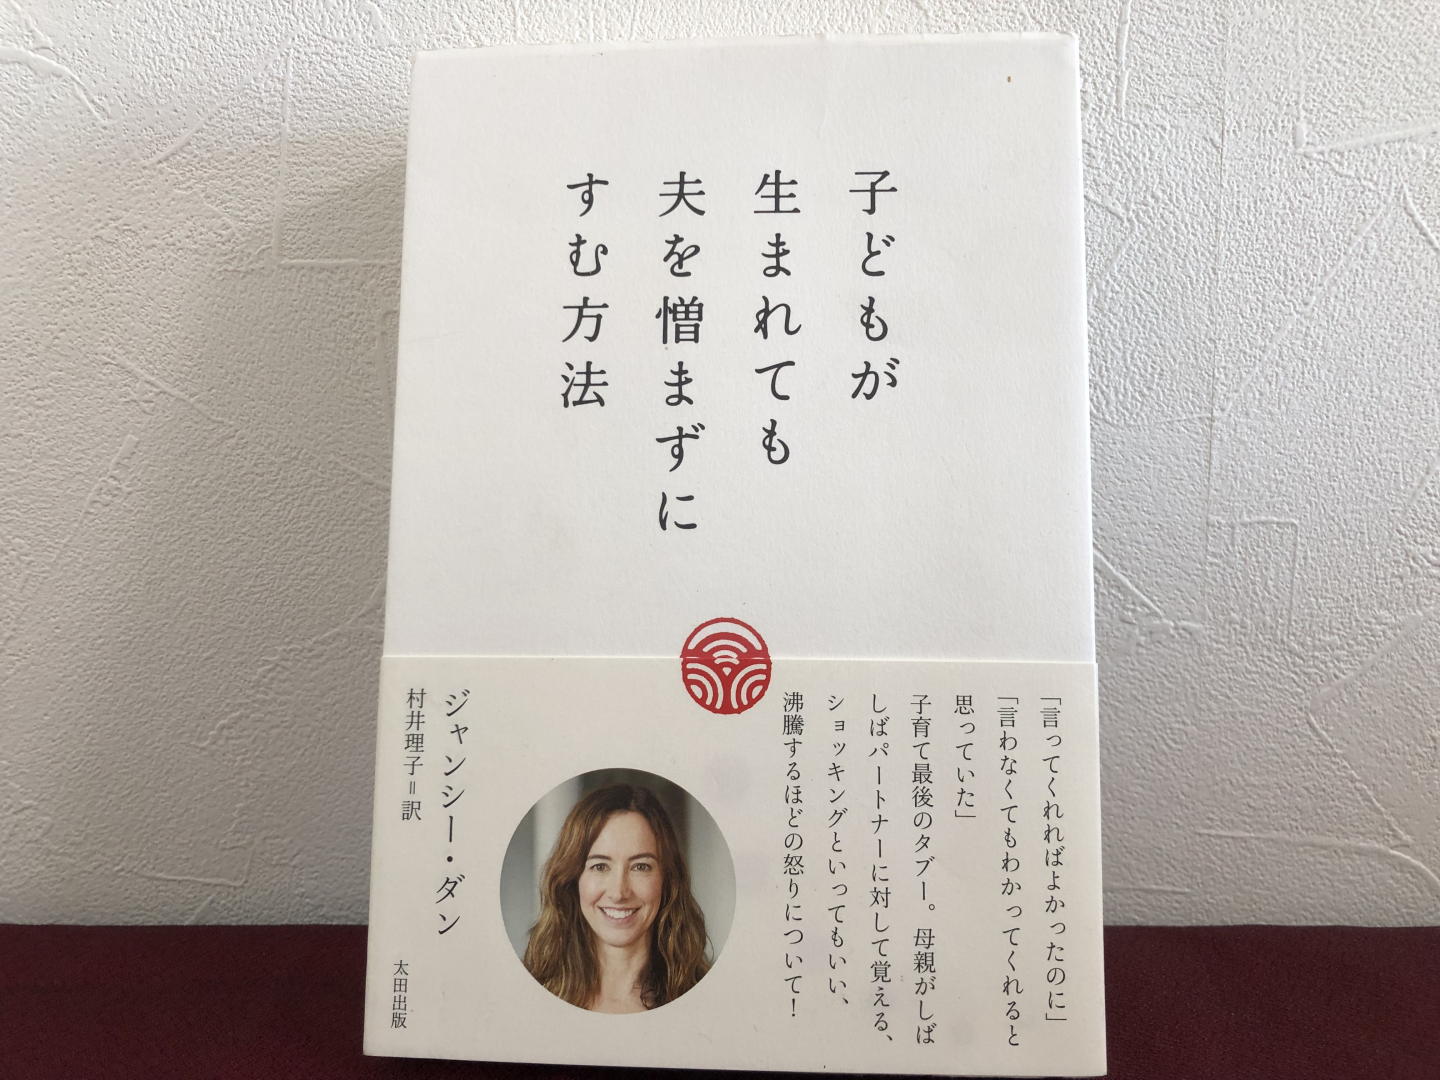 子どもが
生まれても
夫を憎まずに
すむ方法
「言ってくれればよかったのに」
「言わなくてもわかってくれると
思っていた」
子育て最後のタブー。母親がしば
しばパートナーに対して覚える、
ショッキングといってもいい、
沸騰するほどの怒りについて！
ジャンシー・ダン
村井理子＝訳
太田出版